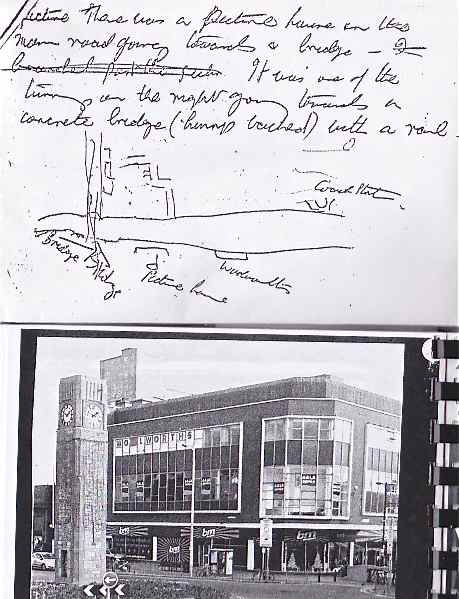 picture There was a picture house on the
main road going towards a bridge –
It was one of the
turnings on the right going towards a
concrete bridge (hump backed) with a rail
Coach Stat.
Bridge
Bridge
Picture house
Woolworths
WOOLWORTHS
bm
bm
bm